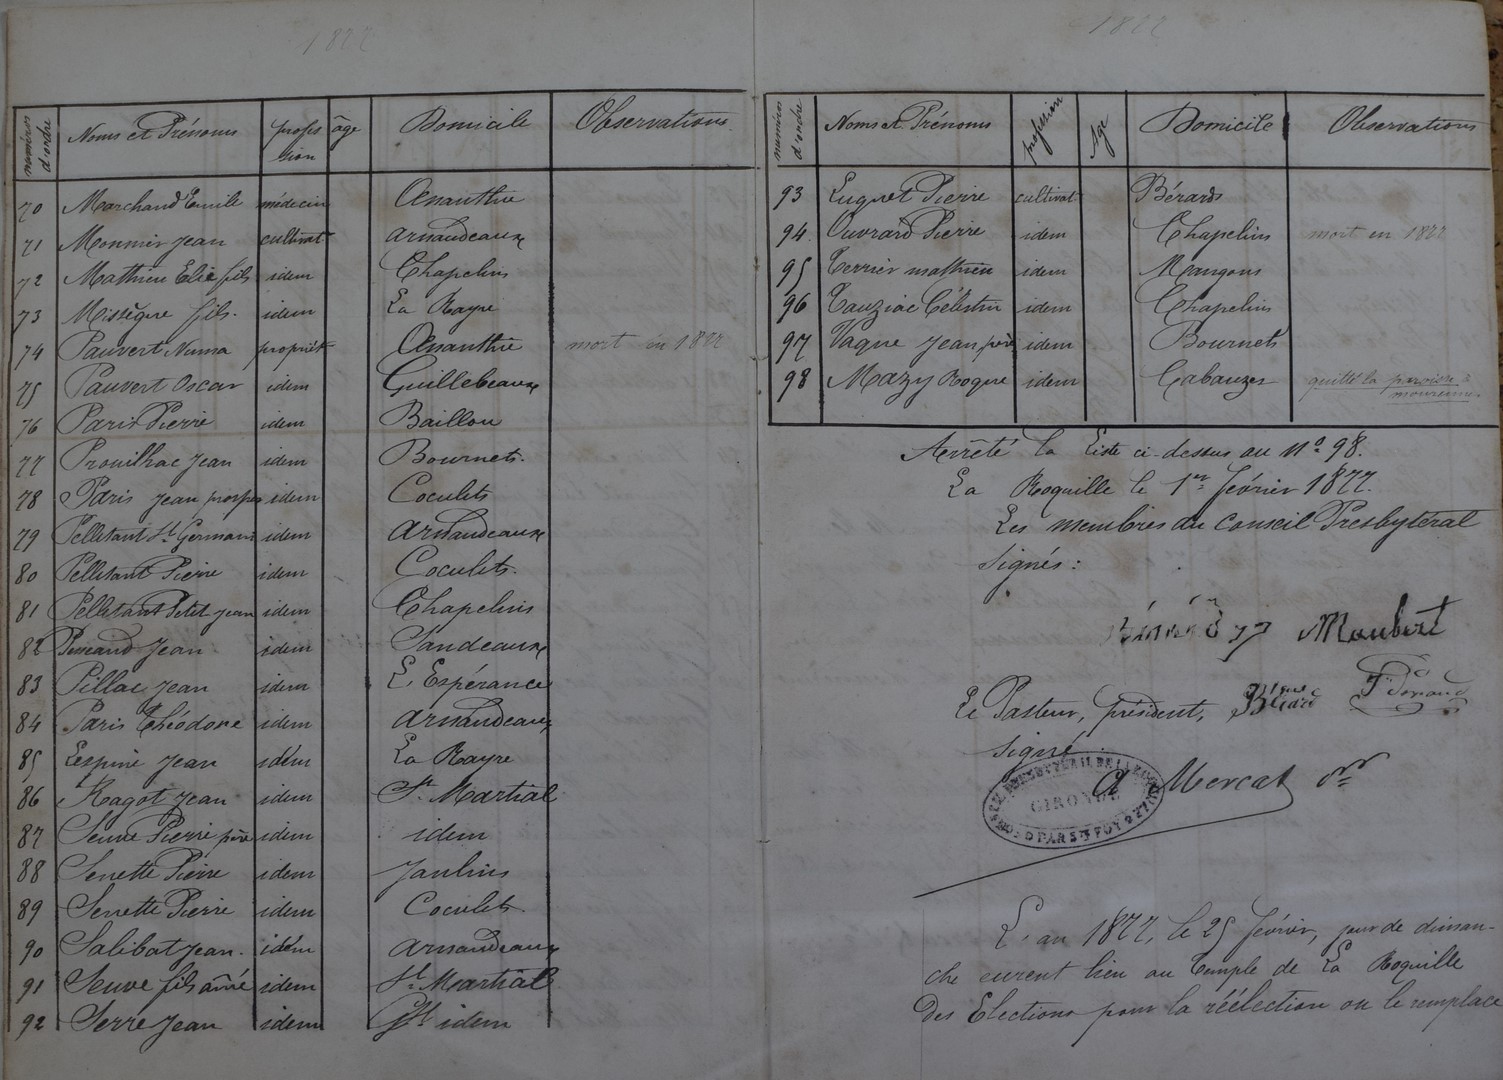 1877
numéros d'ordre Noms et Prénoms profession âge Domicile Observations
70 Marchand Emile médecin Ananthie
71 Monmir Jean cultivat Arnaudeaux
72 Mathieu Elie fils idem Chapelins
73 Missègue fils. idem La Rayre
74 Pauvert Numa propriét Ananthie mort en 1877
75 Pauvert Oscar idem Guillebeaux
76 Paris Pierre idem Baillou
77 Prouilhac Jean idem Bournets.
78 Paris Jean prosper idem Coculets
79 Pellitant St Germain idem Arnaudeaux
80 Pellitant Pierre idem Coculets.
81 Pellitant Petit Jean idem Chapelins
82 Jean idem Sandeaux
83 Pillac Jean idem L'Espérance
84 Paris Théodore idem Arnaudeaux
85 Lespine Jean idem La Rayre
86 Ragot Jean idem St Martial
87 Seuve Pierre père idem idem
88 Senette Pierre idem Jaulins
89 Senette Pierre idem Coculets.
90 Salibat Jean. idem Arnaudeaux
91 Seuve fils aîné idem St Martial
92 Serre Jean idem idem
1877
numéros d'ordre Noms et Prénoms profession Age Domicile Observations
93 Luquet Pierre cultivat Bérards
94 Ouvrard Pierre idem Chapelins mort en 1877
95 Terrier mathieu idem Mangons
96 Tauziac Célestin idem Chapelins
97 Vaque Jean père idem Bournets
98 Mazy Roque idem Cabauzes quitté la paroisse
Arrêté la Liste ci-dessus au No 98.
La Roquille le 1er février 1877.
Les membres du Conseil Presbytéral
Signés:
Maubert
Le Pasteur, président,
signé
A Mercat
GIRONDE
L'an 1877, le 25 février, jour de diman-
che eurent lieu au Temple de La Roquille
des Elections pour la réélection ou le remplace